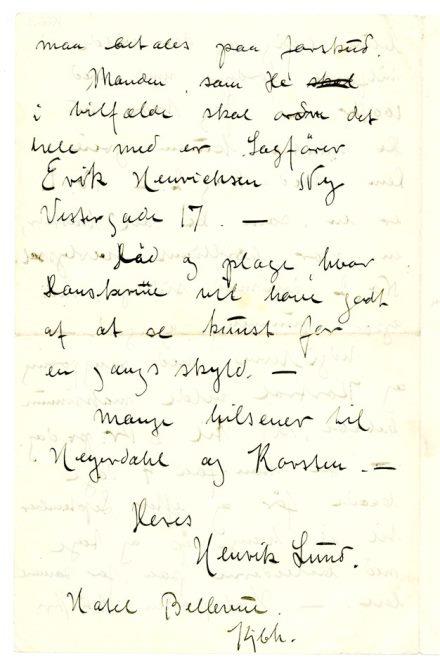 maa betales paa forskud.
Manden, som De skal
i tilfælde skal ordne det
hele med er Sagfører
Erik Henrichsen Ny
Vestergade 17. —
Råd og plage, hvor
Danskerne vil have godt
af at se kunst for
en gangs skyld. —
Mange hilsener til
Heyerdahl og Karsten. —
Deres
Henrik Lund.
Hotel Bellevue.
Kjbh.